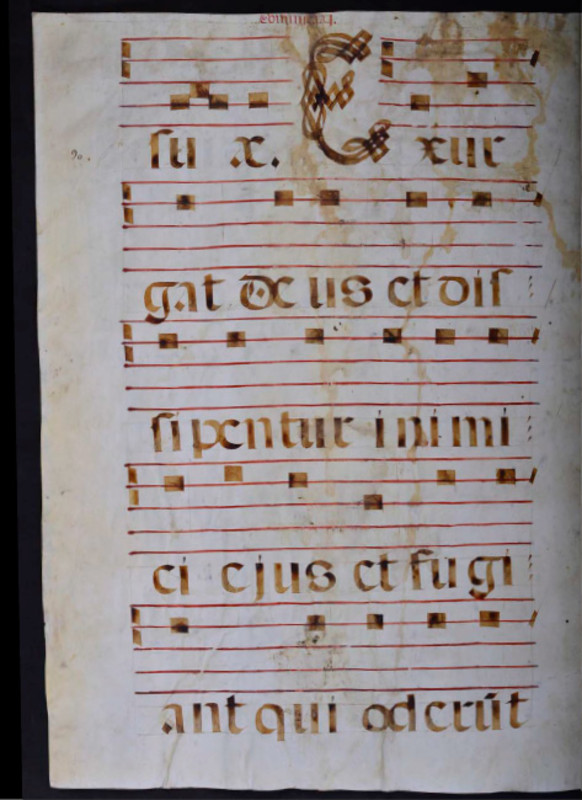 su x. Exur
gat deus et dis
sipentur inimi
ci ejus et fugi
ant qui oderūt